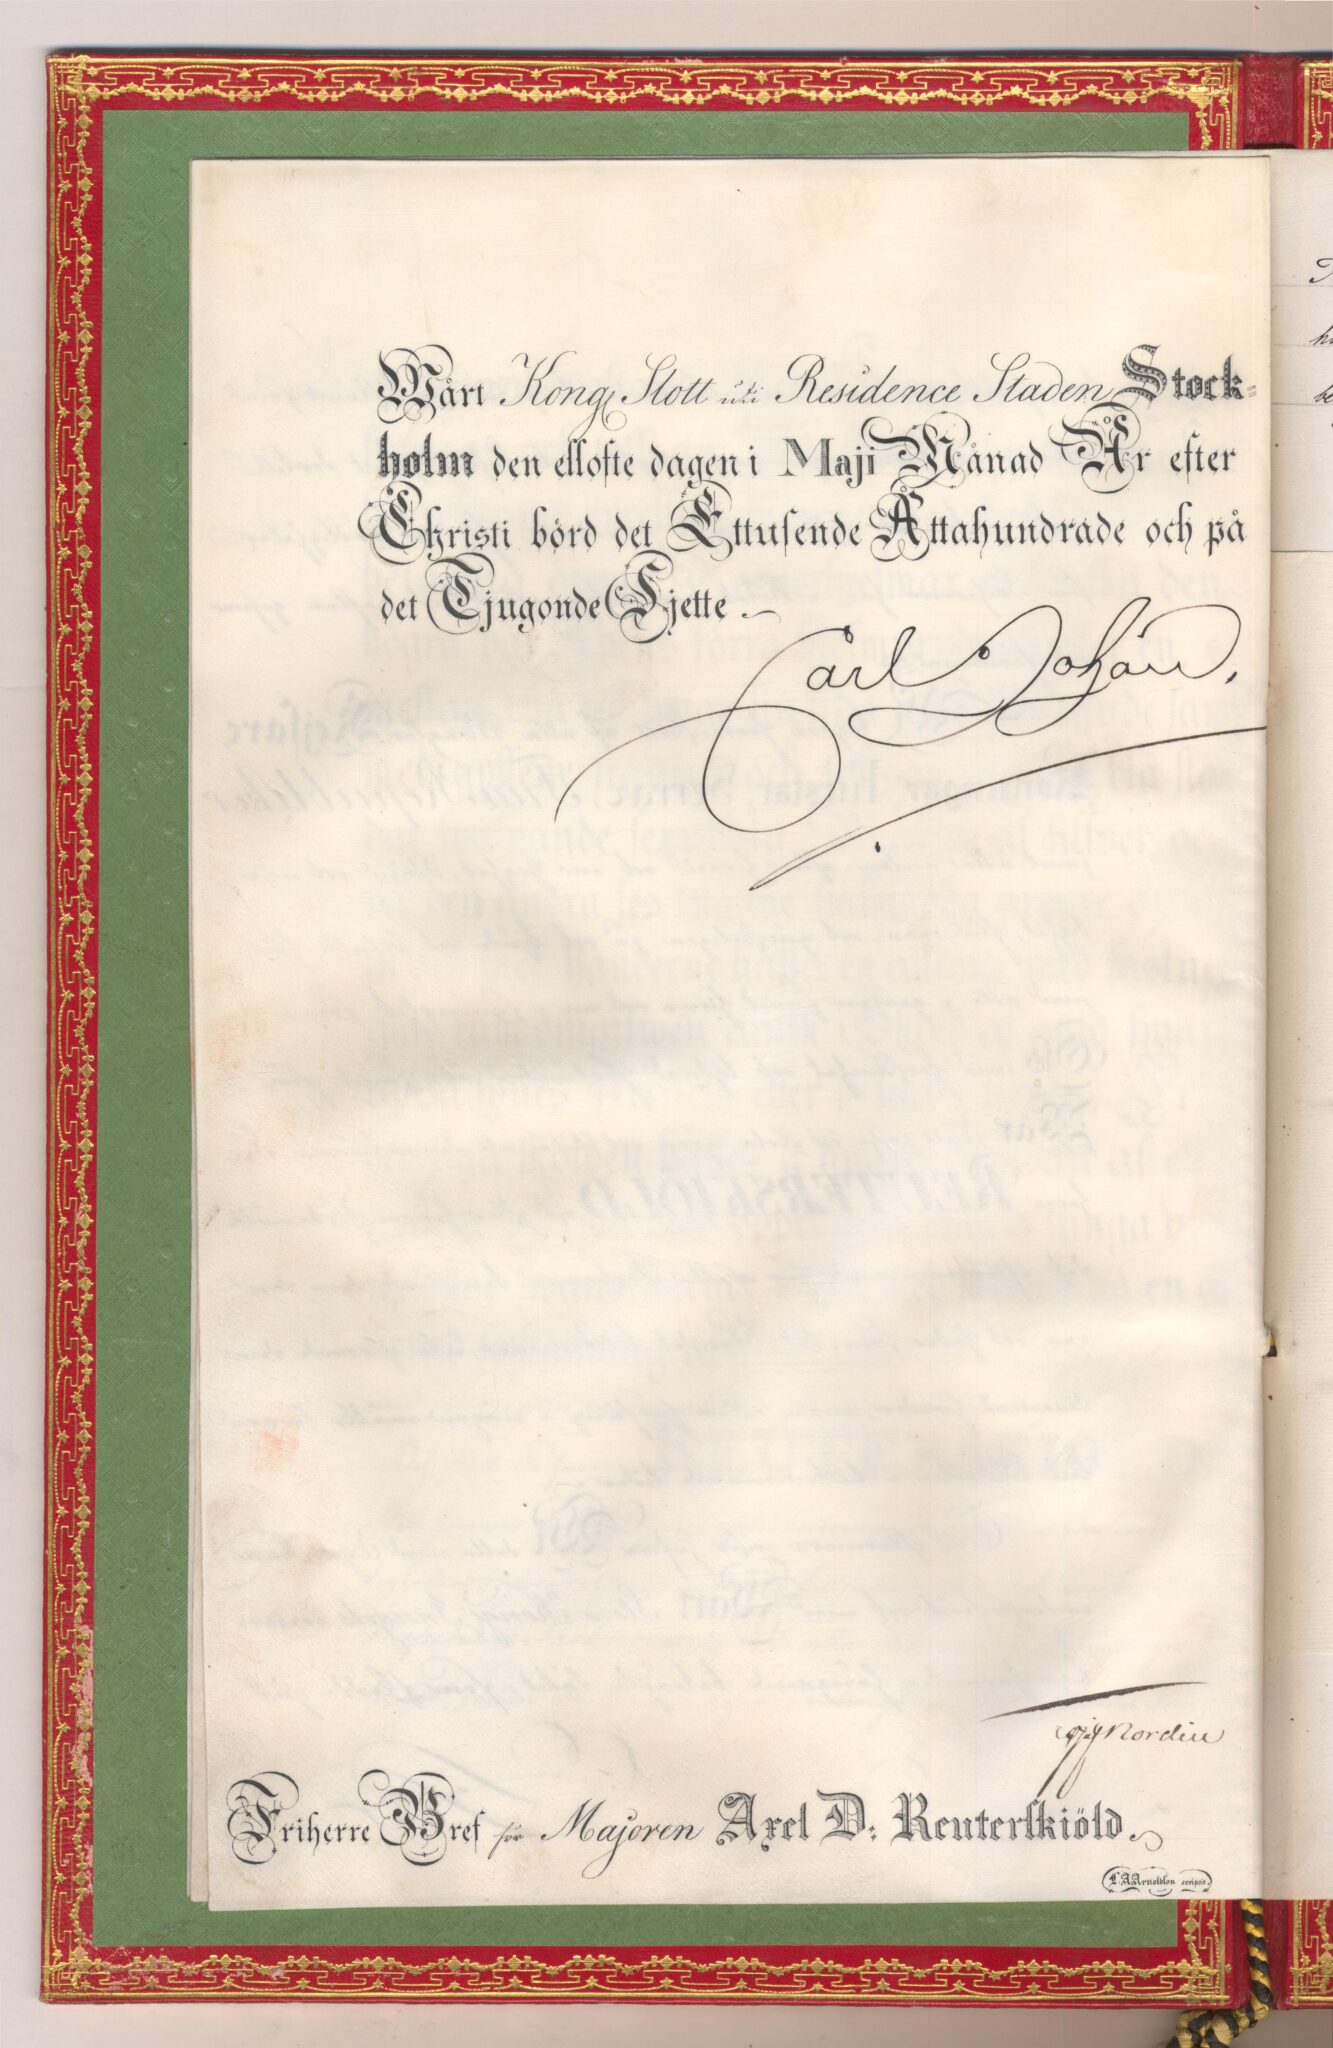 Wårt Kongl Slott uti Residence Staden Stock=
holm den ellofte dagen i Maji Månad År efter
Christi börd det Ettusende Åttahundrade och på
det Tjugonde Fjette.
Carl Johan.
Nordin
Friherre Bref för Majoren Axel D: Reuterskiöld.
Arnoldson scripsit